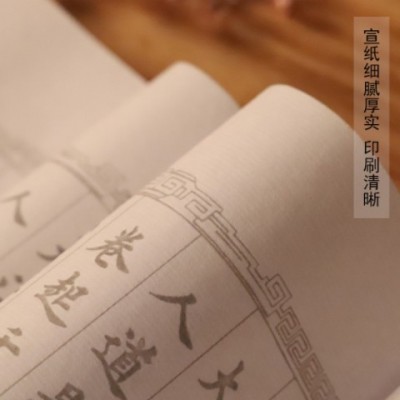 宣纸细腻厚实 印刷清晰
大
人道
卷起
人